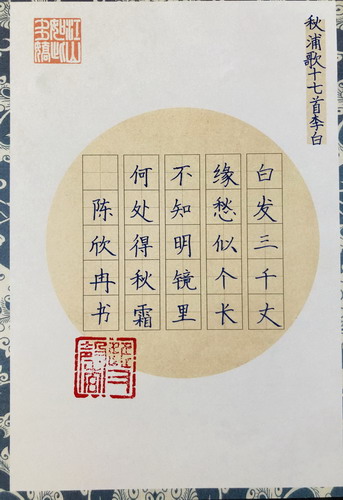 秋浦歌十七首李白
白发三千丈
缘愁似个长
不知明镜里
何处得秋霜
陈欣冉书
江山如此多娇